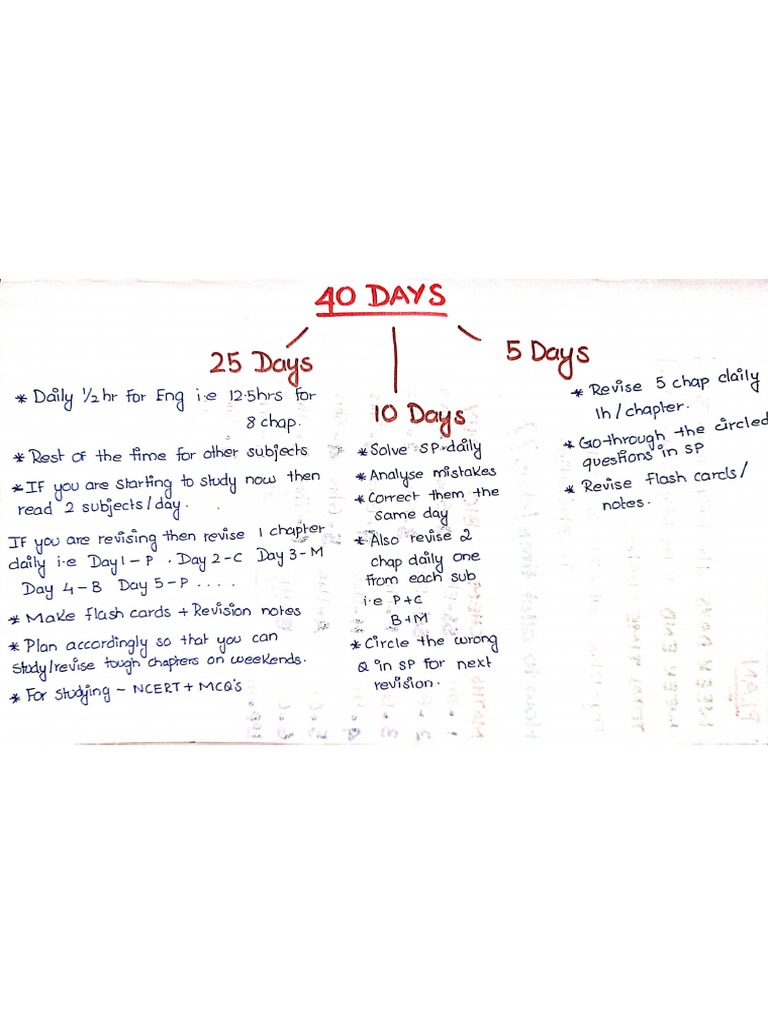 40 DAYS
25 Days
* Daily 1/2 hr for Eng i.e 12.5hrs for
8 chap.
* Rest of the time for other subjects
* If you are starting to study now then
read 2 subjects/day.
If you are revising then revise 1 chapter
daily i.e Day 1 - P . Day 2 - C Day 3 - M
Day 4 - B Day 5 - P . . . .
* Make flash cards + Revision notes
* Plan accordingly so that you can
study/revise tough chapters on weekends.
* For studying - NCERT + MCQ's
10 Days
* Solve SP daily
* Analyse mistakes
* Correct them the
same day
* Also revise 2
chap daily one
from each sub
i.e P+C
B+M
* Circle the wrong
Q in SP for next
revision.
5 Days
* Revise 5 chap daily
1h/chapter.
* Go through the circled
questions in SP
* Revise flash cards/
notes.